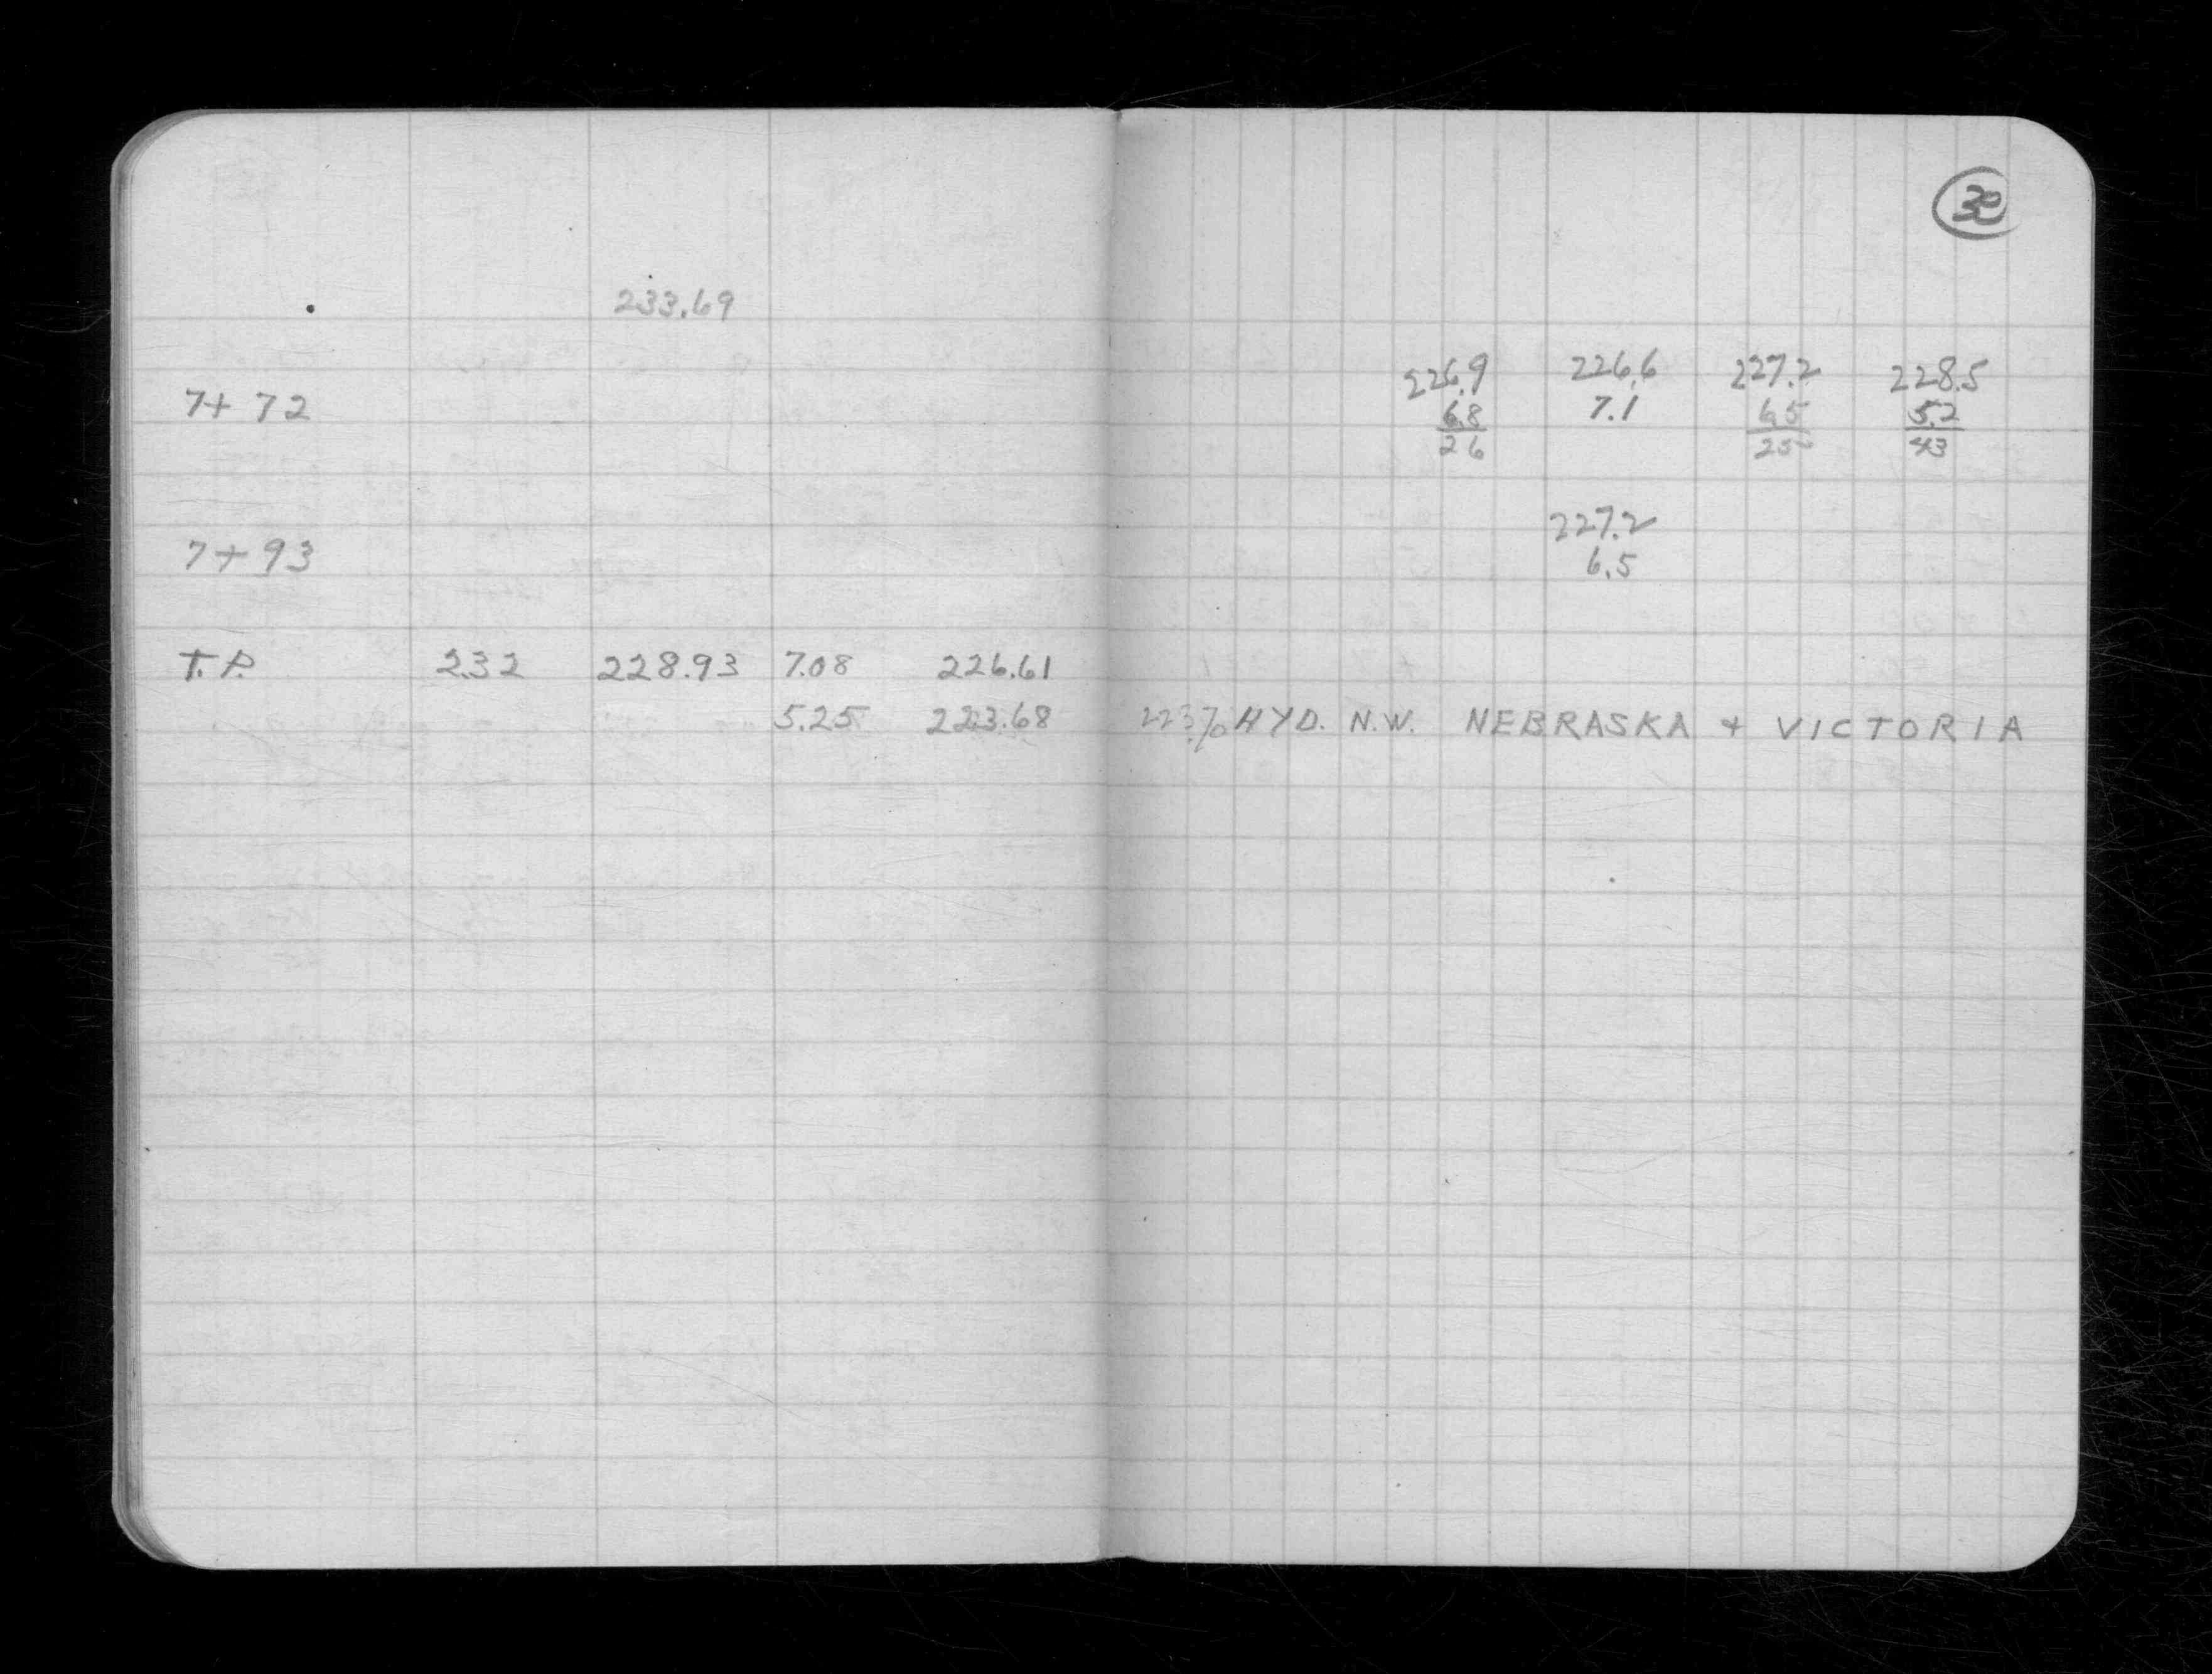 30
233.69
226.9 226.6 227.2 228.5
7+72 6.8 7.1 6.5 5.2
26 25 43
227.2
7+93 6.5
T.P. 2.32 228.93 7.08 226.61
5.25 223.68 223.70 HYD. N.W. NEBRASKA + VICTORIA